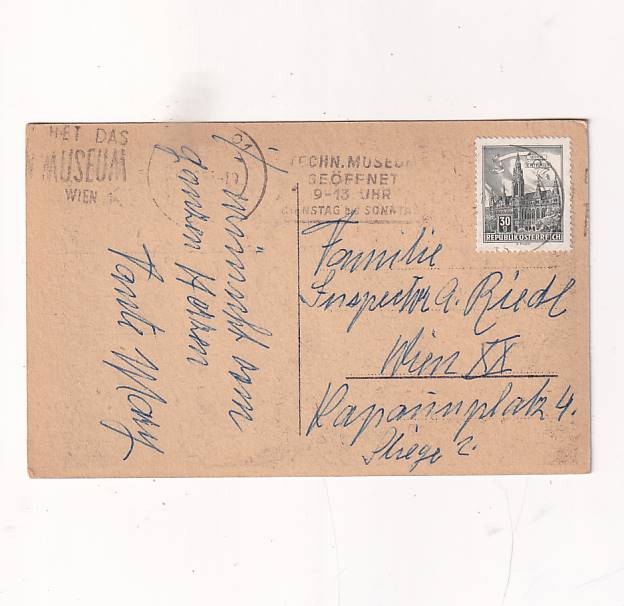 HET DAS
MUSEUM
WIEN
TECHN. MUSEUM
GEÖFFNET
9-13 UHR
DIENSTAG BIS SONNTAG
30
REPUBLIK ÖSTERREICH
Familie
Inspector A. Riedl
Wien XX
Kapaunplatz 4.
Stiege 2.
wünscht vom
ganzen Herzen
Tante Mary